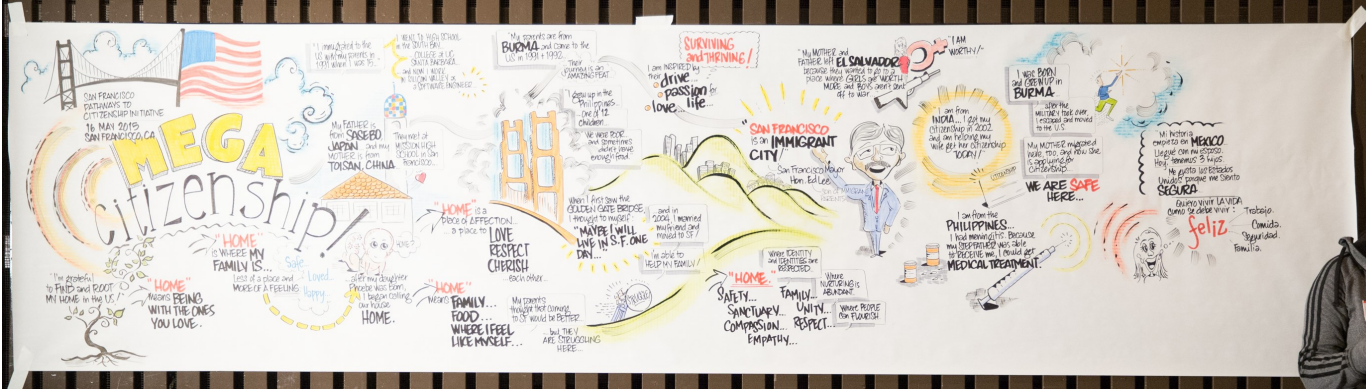 SAN FRANCISCO
PATHWAYS TO
CITIZENSHIP INITIATIVE
16 MAY 2015
SAN FRANCISCO, CA
MEGA
citizenship!
"I'm grateful
to FIND and ROOT
MY HOME in the US!"
"HOME"
means BEING
WITH THE ONES
YOU LOVE.
"HOME"
is WHERE MY
FAMILY IS...
Less of a place and
MORE OF A FEELING
Safe...
Loved...
happy...
"I immigrated to the
US with my parents in
when I was 15..."
I WENT TO HIGH SCHOOL
in the SOUTH BAY,
COLLEGE at UC
SANTA BARBARA,
and NOW I WORK
in SILICON VALLEY as
a SOFTWARE ENGINEER...
My FATHER is
from SASEBO
JAPAN and my
MOTHER is from
TOISAN, CHINA.
They met at
MISSION HIGH
SCHOOL in San
Francisco...
after my daughter
Phoebe was born,
I began calling
our house
HOME.
"HOME" is a
place of AFFECTION...
a place to
LOVE
RESPECT
CHERISH
each other...
"HOME"
means
FAMILY...
FOOD...
WHERE I FEEL
LIKE MYSELF...
My parents
thought that coming
to SF would be BETTER...
...but THEY
ARE STRUGGLING
HERE...
"My parents are from
BURMA and came to the
US in 1991 + 1992.
Their
journey is an
AMAZING FEAT
"I grew up in the
Philippines...
one of 12
children
We were POOR
and sometimes
didn't have
enough food.
when I first saw the
GOLDEN GATE BRIDGE,
I thought to myself
"MAYBE I WILL
LIVE IN S.F. ONE
DAY..."
...and in
2006, I married
my friend and
moved to SF!
I'm able to
HELP MY FAMILY
SURVIVING
and THRIVING!
I am INSPIRED by
their drive
passion for
love... life...
"SAN FRANCISCO
is an IMMIGRANT
CITY"
San Francisco Mayor
Hon. Ed Lee
"HOME."
SAFETY...
SANCTUARY...
COMPASSION...
EMPATHY...
FAMILY...
UNITY...
RESPECT...
Where IDENTITY
and IDENTITIES are
RESPECTED.
Where
NURTURING IS
ABUNDANT.
Where PEOPLE
can FLOURISH
"My MOTHER and
FATHER left EL SALVADOR
because they wanted to go to a
place where GIRLS are WORTH
MORE and BOYS aren't sent
off to WAR.
"I AM
WORTHY!"
I am from
INDIA... I got my
Citizenship in 2002
and am helping my
wife get her citizenship
TODAY!
I am from the
PHILIPPINES...
I had meningitis. Because
my STEPFATHER was able
to RECEIVE me, I could get
MEDICAL TREATMENT.
I was BORN
and GREW UP in
BURMA...
...after the
MILITARY took over,
I escaped and moved
to the U.S.
My MOTHER migrated
here, too, and now she
is applying for
citizenship...
WE ARE SAFE
HERE...
Mi historia
empieza en MEXICO.
Llegué con mi esposo.
Hoy, tenemos 3 hijos.
Me gusta los Estados
Unidos porque me siento
SEGURA.
Quiero VIVIR LA VIDA
como se debe vivir:
feliz
Trabajo.
Comida.
Seguridad.
Familia.